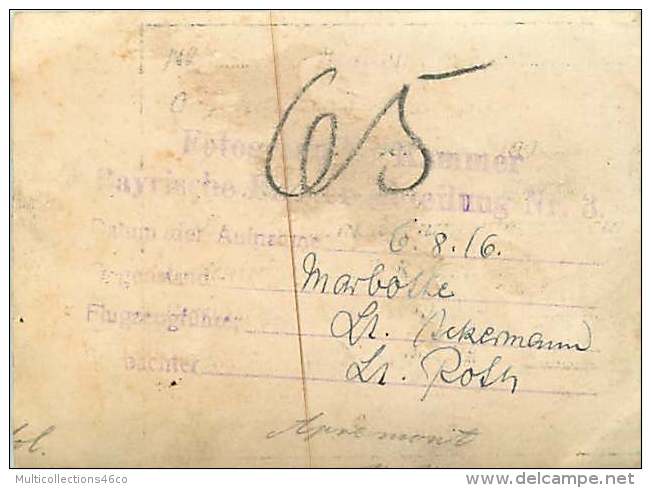 No
65
Kammer
Bayrische Flieger-Abteilung Nr. 3.
Datum der Aufnahme 6.8.16.
Gegenstand: Marbotte
Flugzeugführer Lt. Ackermann
bachter Lt. Roth
Apremont
Multicollections46co
delcampe.net